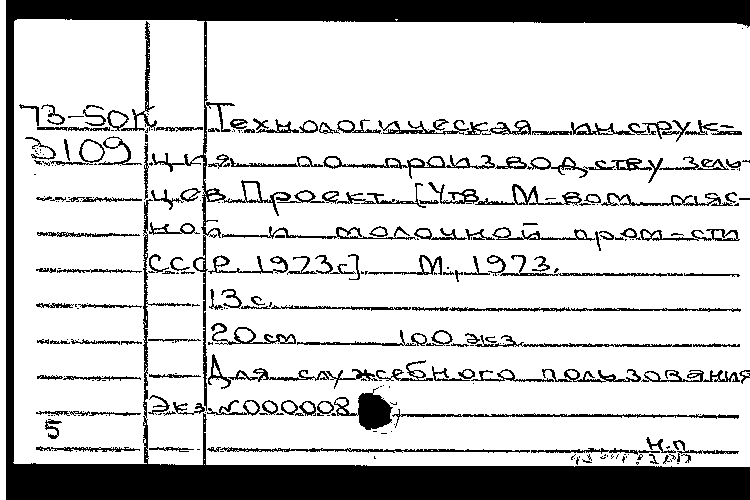 73-50К Технологическая инструк-
3109 ция по производству зель-
цев Проект. [Утв. М-вом мяс-
ной и молочной пром-сти
СССР. 1973г.] М., 1973.
13 с.
20 см 100 экз.
Для служебного пользования
Экз. №000008
5
Н.п